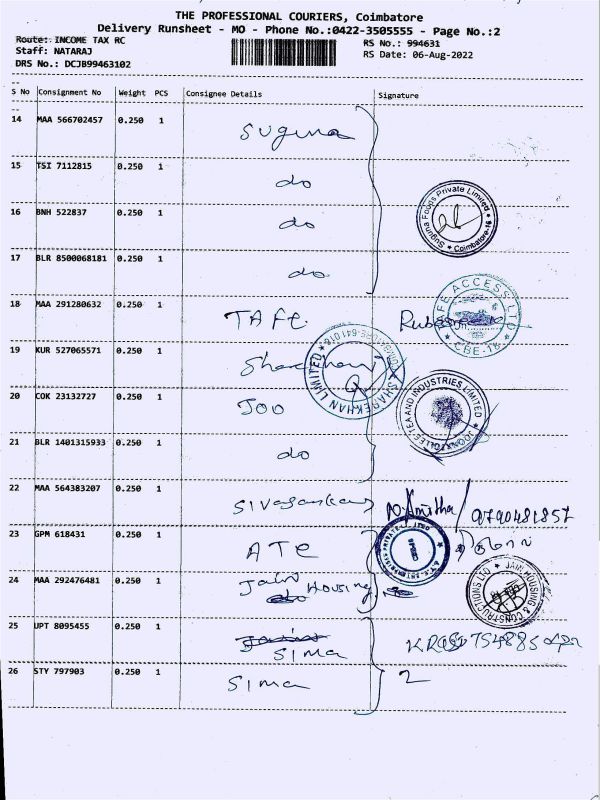 THE PROFESSIONAL COURIERS, Coimbatore
Delivery Runsheet - MO - Phone No.:0422-3505555 - Page No.:2
Route: INCOME TAX RC
RS No.: 994631
Staff: NATARAJ
RS Date: 06-Aug-2022
DRS No.: DCJB99463102
S No Consignment No Weight PCS Consignee Details Signature
14 MAA 566702457 0.250 1 Suguna
15 TSI 7112815 0.250 1 do
16 BNH 522837 0.250 1 do
Suguna Foods Private Limited * Coimbatore-18 *
17 BLR 8500068181 0.250 1 do
18 MAA 291280632 0.250 1 TAFE
ACCESS LTD
* CBE-18 *
19 KUR 527065571 0.250 1 Sharekhan
SHAREKHAN LIMITED * COIMBATORE-641 018 *
20 COK 23132727 0.250 1 JOO
TEA AND INDUSTRIES LIMITED
21 BLR 1401315933 0.250 1 do
22 MAA 564383207 0.250 1 Sivasankar
9790481857
23 GPM 618431 0.250 1 ATE
24 MAA 292476481 0.250 1 Jain Housing
JAIN HOUSING & CONSTRUCTIONS LTD *
25 UPT 8095455 0.250 1 SIMA
26 STY 797903 0.250 1 SIMA 2